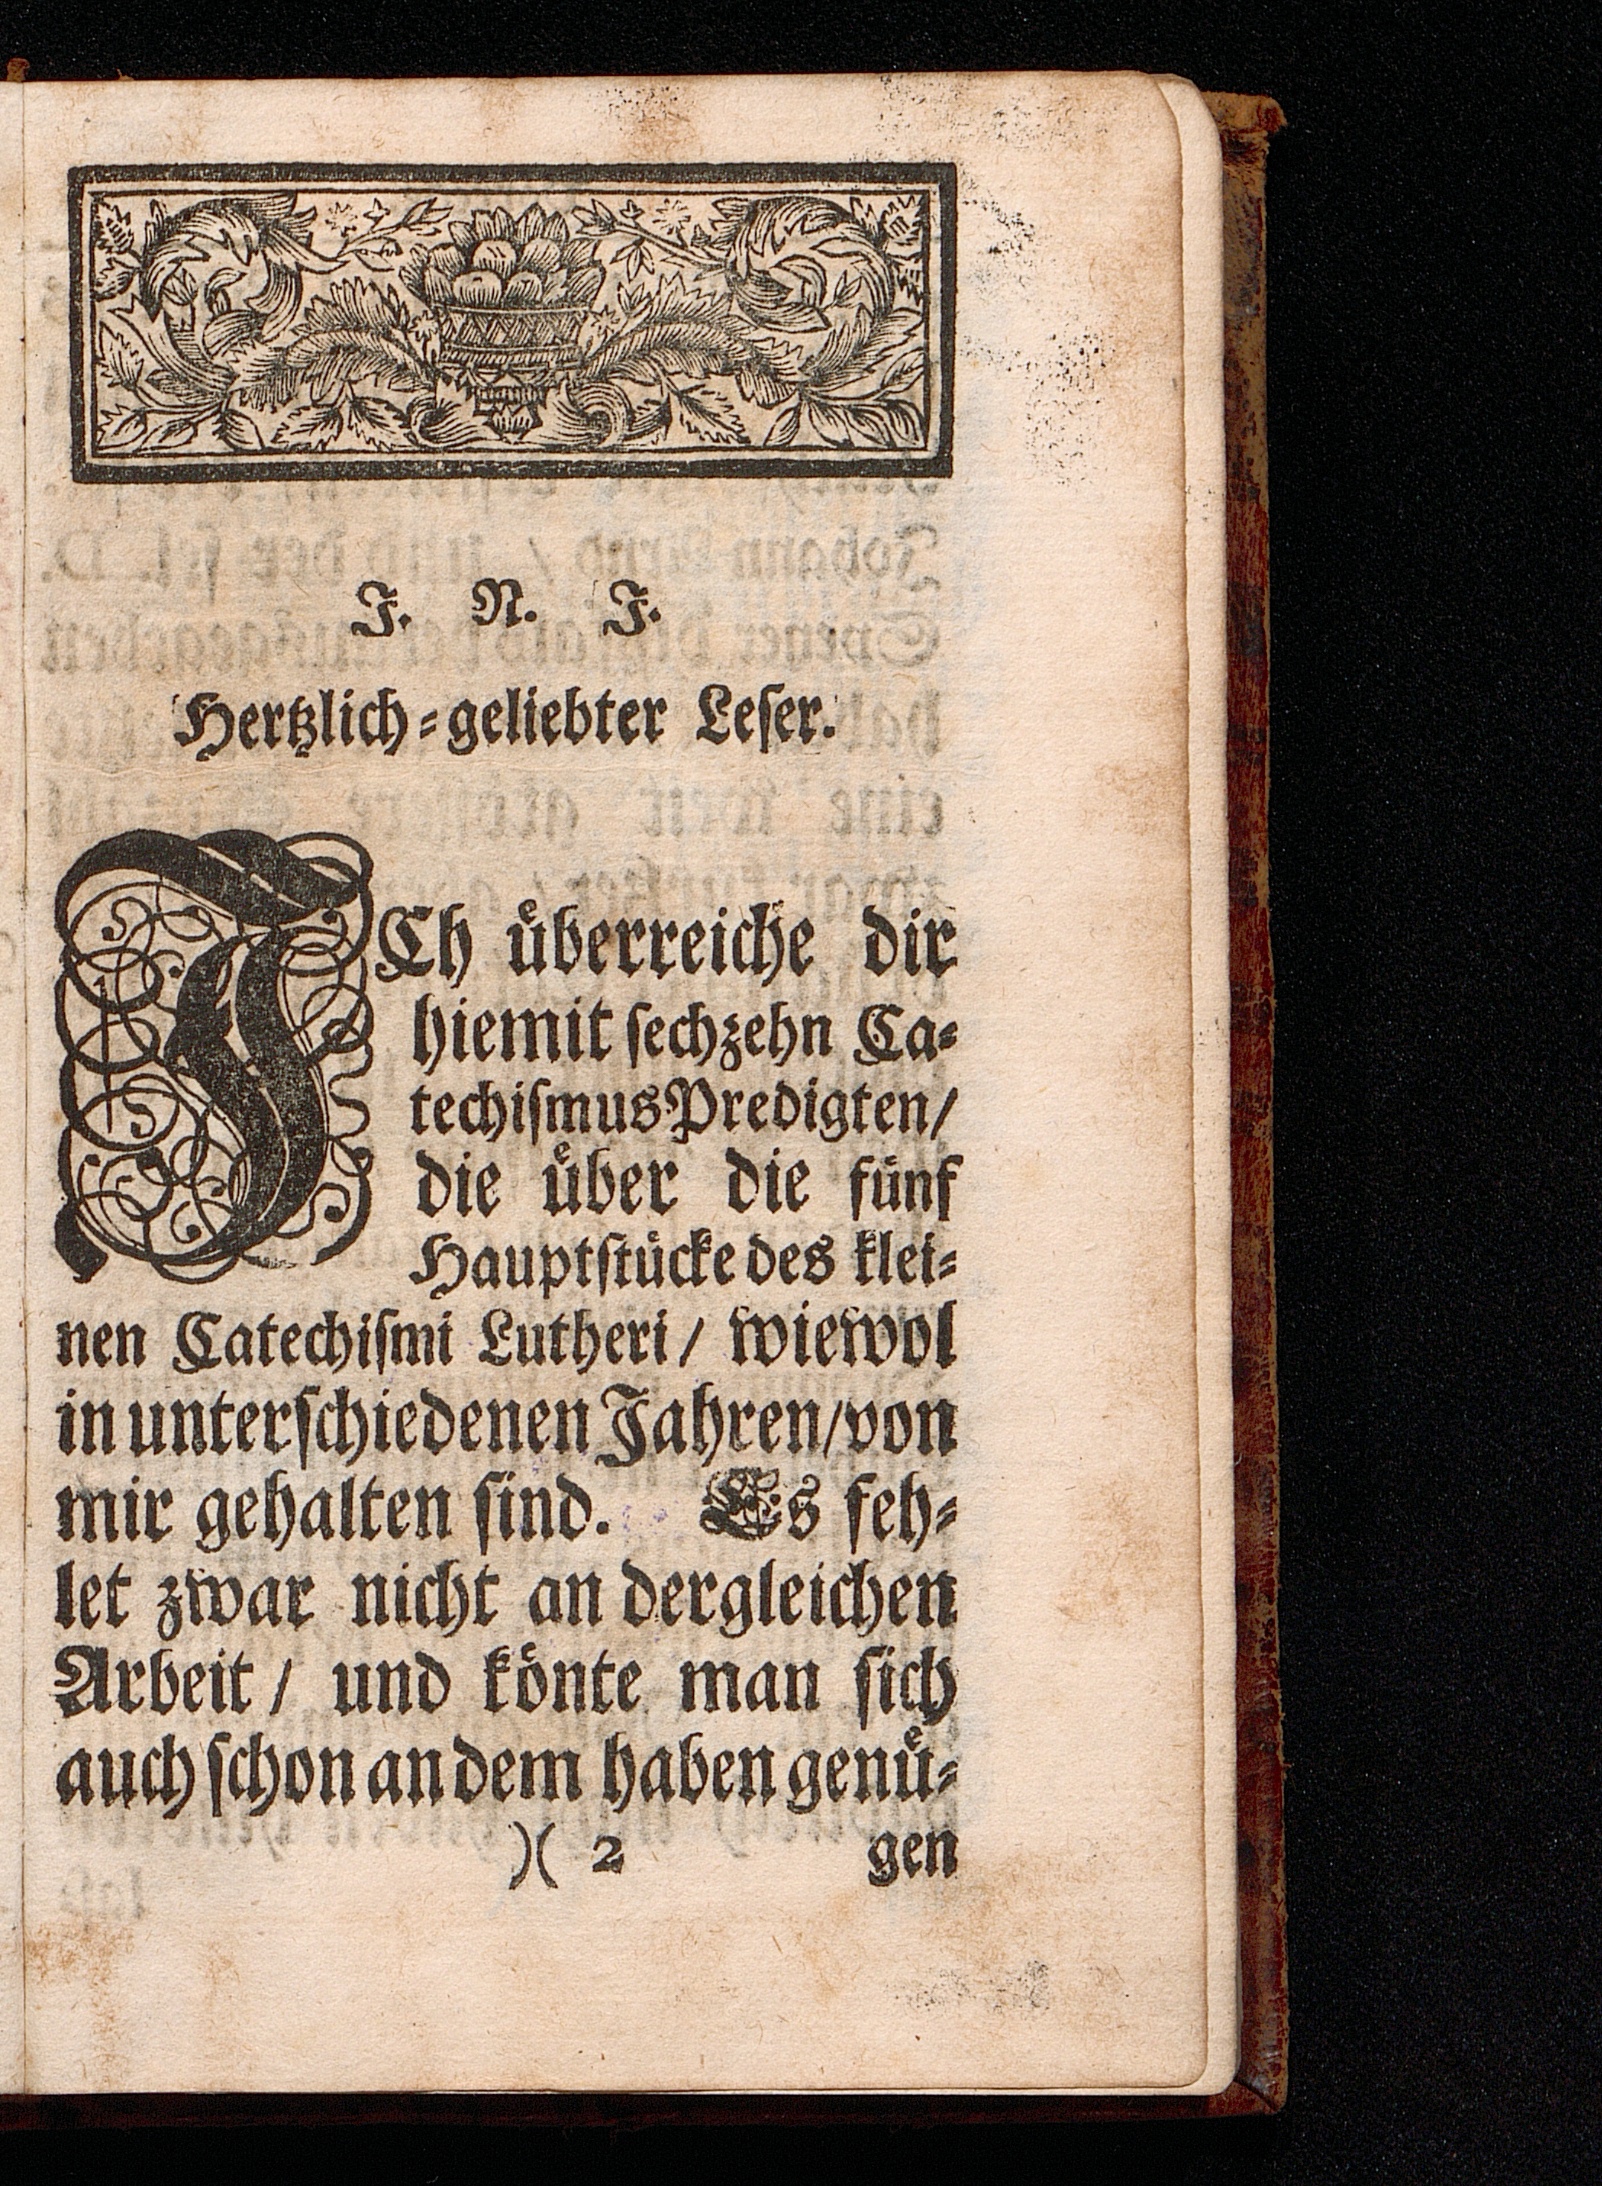 J. N. J.
Hertzlich-geliebter Leſer.
JCh uͤberreiche dir
hiemit ſechzehn Ca-
techiſmus Predigten/
die uͤber die fuͤnf
Hauptſtuͤcke des klei-
nen Catechiſmi Lutheri/ wiewol
in unterſchiedenen Jahren/ von
mir gehalten ſind. Es feh-
let zwar nicht an dergleichen
Arbeit/ und koͤnte man ſich
auch ſchon an dem haben genuͤ-
)( 2 gen